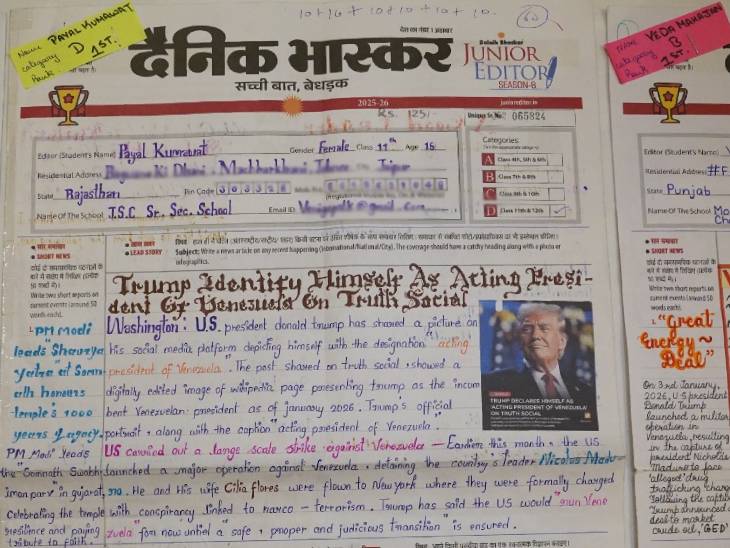 10+10+10+10+10+10.
60
Name PAYAL KUMAWAT
Category D
Rank 1ST!
देश का नंबर 1 अखबार
दैनिक भास्कर
सच्ची बात, बेधड़क
Dainik Bhaskar
JUNIOR
EDITOR
SEASON-8
2025-26
junioreditor.in
Rs. 125/-
Unique Sr. No. 065824
Editor (Student's Name) Payal Kumawat Gender Female Class 11th Age 16
Residential Address
State Rajasthan Pin Code 303328
Name Of The School J.S.C Sr. Sec. School Email ID
Categories:
A Class 4th, 5th & 6th
B Class 7th & 8th
C Class 9th & 10th
D Class 11th & 12th ✓
सार समाचार
SHORT NEWS
कोई दो समसामयिक घटनाओं के
बारे में संक्षेप में लिखिए (प्रत्येक
50 शब्दों में)।
Write two short reports on
current events (around 50
words each).
1. PM Modi
leads "Shaurya
yatra" at Somn
ath honours
temple's 1000
years legacy.
PM Modi leads
the "Somnath Swabh
iman parv" in gujarat,
celebrating the temple
resilience and paying
tribute to faith.
खास खबर
LEAD STORY
Subject: Write a news or article on any recent happening (International/National/City). The coverage should have a catchy heading along with a photo or
infographics.
Trump Identify Himself As Acting Presi-
dent Of Venezuela On Truth Social
Washington: U.S. president donald trump has shared a picture on
his social media platform depicting himself with the designation "acting
president of Venezuela". The post shared on truth social, showed a
digitally edited image of wikipedia page presenting trump as the incum
bent Venezuelan president as of january 2026. Trump's official
portrait, along with the caption "acting president of Venezuela.
US carried out a large scale strike against Venezuela - Earlier this month, the US
launched a major operation against Venezuela, detaining the country's leader Nicolas Madu
ro. He and His wife Cilia flores were flown to New York where they were formally charged
with conspiracy linked to narco - terrorism. Trump has said the US would "run Vene
zuela" for now until a "safe, proper and judicious transition" is ensured.
TRUMP DECLARES HIMSELF AS
'ACTING PRESIDENT OF VENEZUELA'
ON TRUTH SOCIAL
Name VEDA MAHAJAN
Category B
Rank 1ST!
Editor (Student's Name)
Residential Address #F
State Punjab
Name Of The School Mo
सार समाचार
SHORT NEWS
कोई दो समसामयिक घटनाओं के
बारे में संक्षेप में लिखिए (प्रत्येक
50 शब्दों में)।
Write two short reports on
current events (around 50
words each).
1. "Great
Energy~
Deal"
On 3rd January,
2026, U.S president
Donald Trump
launched a military
operation in
Venezuela, resulting
in the capture of
president Nicholas
Maduro to face
'alleged' drug
trafficking charges
Following the capture
Trump announced a
deal to market
crude oil, 'GED'